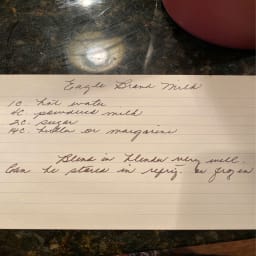 Eagle Brand Milk
1C. hot water
4C powdered milk
2C. sugar
1/4C. butter or margarine
Blend in blender very well.
Can be stored in refrig. or frozen